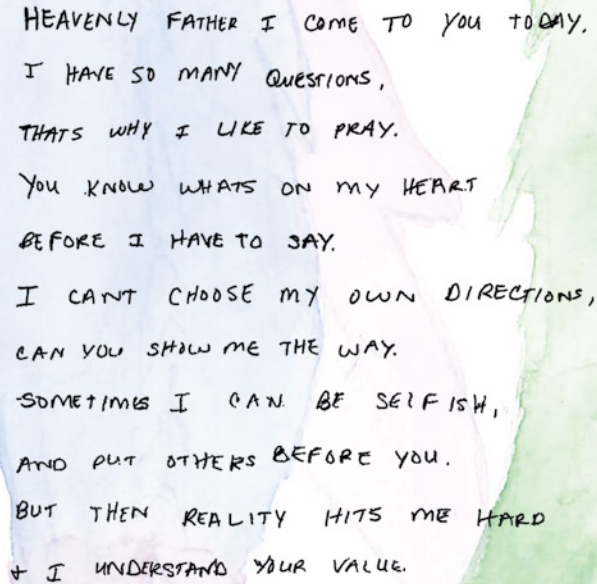 HEAVENLY FATHER I COME TO YOU TODAY.
I HAVE SO MANY QUESTIONS,
THATS WHY I LIKE TO PRAY.
YOU KNOW WHATS ON MY HEART
BEFORE I HAVE TO SAY.
I CANT CHOOSE MY OWN DIRECTIONS,
CAN YOU SHOW ME THE WAY.
SOMETIMES I CAN BE SELFISH,
AND PUT OTHERS BEFORE YOU.
BUT THEN REALITY HITS ME HARD
+ I UNDERSTAND YOUR VALUE.